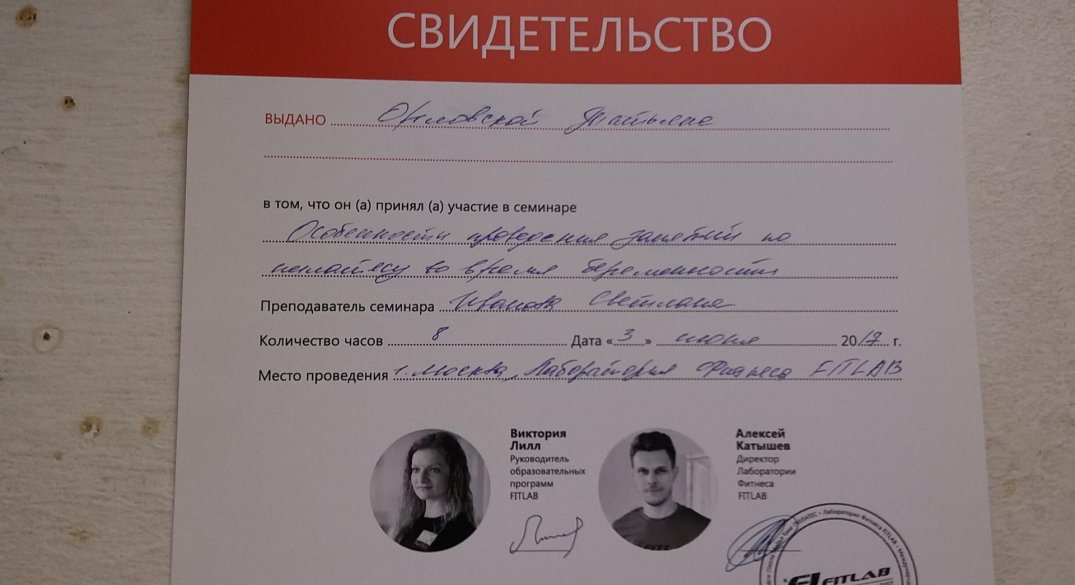 СВИДЕТЕЛЬСТВО
ВЫДАНО Орловской Татьяне
в том, что он (а) принял (а) участие в семинаре
Особенности проведения занятий по
пилатесу во время беременности
Преподаватель семинара Иванова Светлана
Количество часов 8 Дата «3» июня 2017 г.
Место проведения г. Москва, Лаборатория Фитнеса FITLAB
Виктория
Лилл
Руководитель
образовательных
программ
FITLAB
Алексей
Катышев
Директор
Лаборатории
Фитнеса
FITLAB
FITLAB